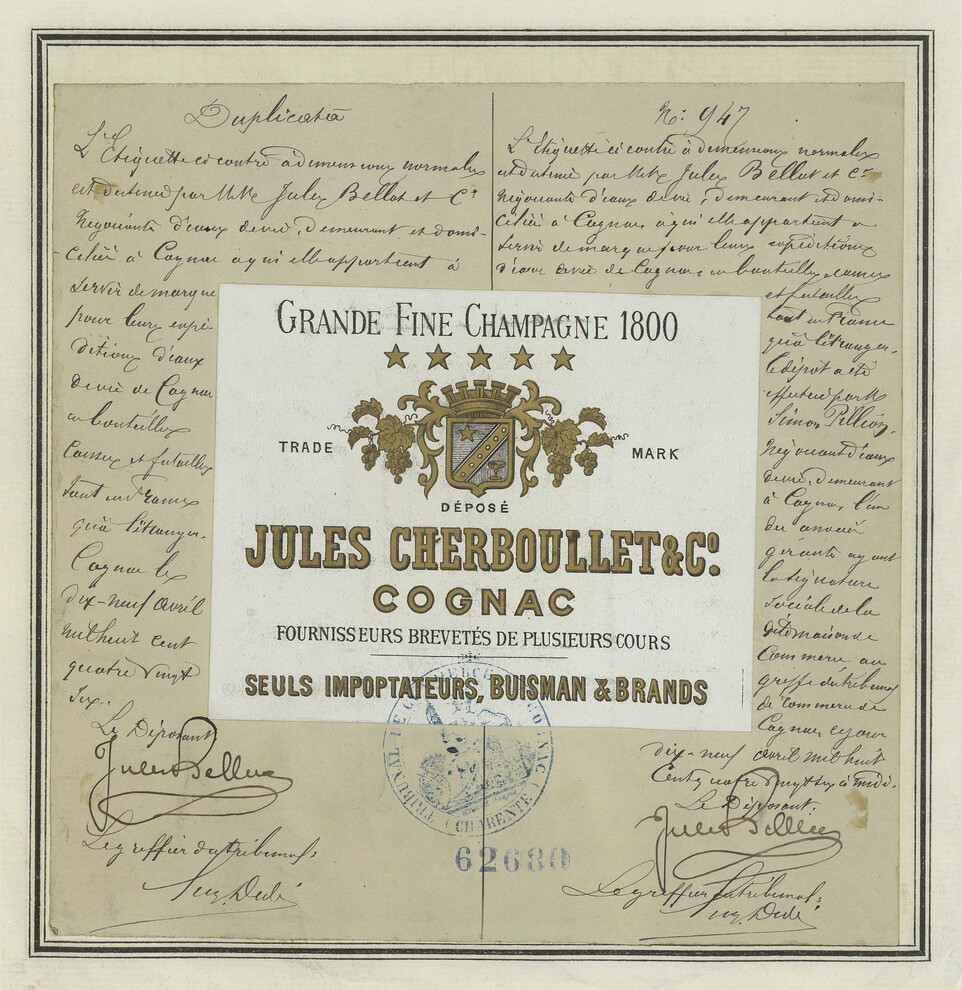 Duplicata
L'Etiquette ci contre à dimensions normales
est destinée par MMrs Jules Bellot et Cie
Négociants d'eaux de vie, demeurant et domi-
ciliés à Cognac à qui elle appartient à
servir de marque
pour leurs expé-
ditions d'eaux
de vie de Cognac
en bouteilles
caisses et futailles
tant en France
qu'à l'étranger.
Cognac le
dix-neuf avril
mil huit cent
quatre vingt
six.
Le Déposant
Jules Bellot
Le greffier du tribunal:
N° 947
L'Etiquette ci contre à dimensions normales
est destinée par MMrs Jules Bellot et Cie
Négociants d'eaux de vie, demeurant et domi-
ciliés à Cognac, à qui elle appartient à
servir de marque pour leurs expéditions
d'eaux de vie de Cognac en bouteilles caisses
et futailles
tant en France
qu'à l'étranger.
Le dépôt a été
effectué par M
Simon Pellion,
Négociant d'eaux
de vie, demeurant
à Cognac, l'un
des associés
gérants ayant
la signature
sociale de la
dite maison de
Commerce au
greffe du tribunal
de Commerce de
Cognac, ce jour
dix-neuf avril mil huit
cent quatre vingt six à midi.
Le Déposant.
Le greffier du tribunal:
GRANDE FINE CHAMPAGNE 1800
TRADE MARK
DÉPOSÉ
JULES CHERBOULLET & Co.
COGNAC
FOURNISSEURS BREVETÉS DE PLUSIEURS COURS
SEULS IMPOPTATEURS, BUISMAN & BRANDS
TRIBUNAL DE COMMERCE DE COGNAC (CHARENTE)
62680